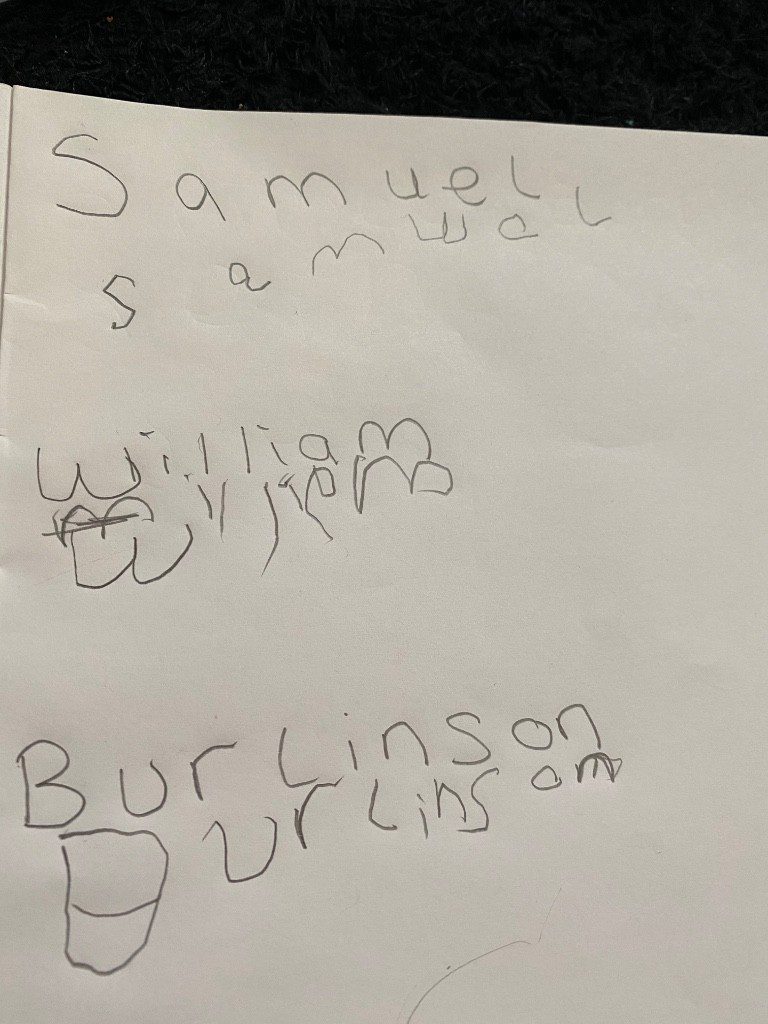 Samuel
samuel
william
william
Burlinson
Burlinson